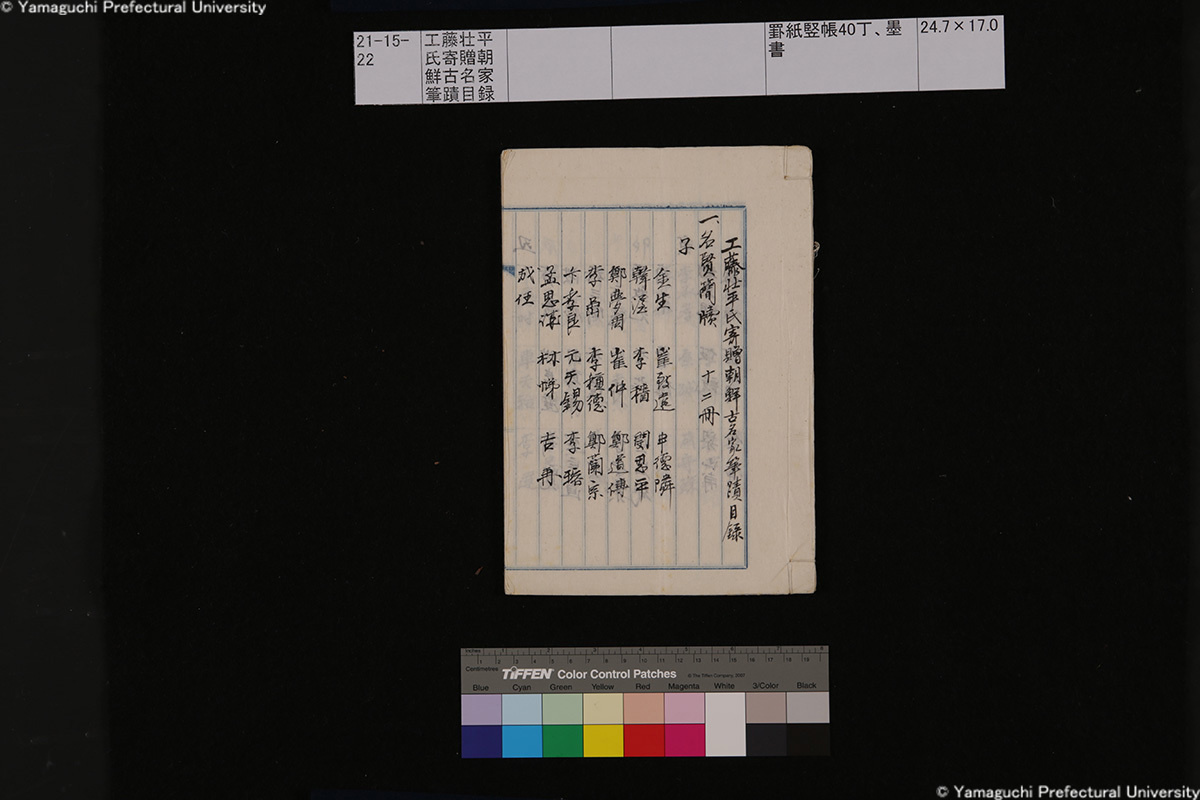 © Yamaguchi Prefectural University
21-15-
22
工藤壮平
氏寄贈朝
鮮古名家
筆蹟目録
罫紙竪帳40丁、墨
書
24.7×17.0
工藤壮平氏寄贈朝鮮古名家筆蹟目録
一、名賢簡牘 十二冊
子
金生 崔致遠 申德隣
韓濩 李穡 閔思平
鄭夢周 崔沖 鄭道傳
李嵒 李種德 鄭蘭宗
卞季良 元天錫 李瑢
孟思誠 林悌 吉再
成任
Inches 1 2 3 4 5 6 7 8
Centimetres 1 2 3 4 5 6 7 8 9 10 11 12 13 14 15 16 17 18 19
TIFFEN Color Control Patches © The Tiffen Company, 2007
Blue Cyan Green Yellow Red Magenta White 3/Color Black
© Yamaguchi Prefectural University